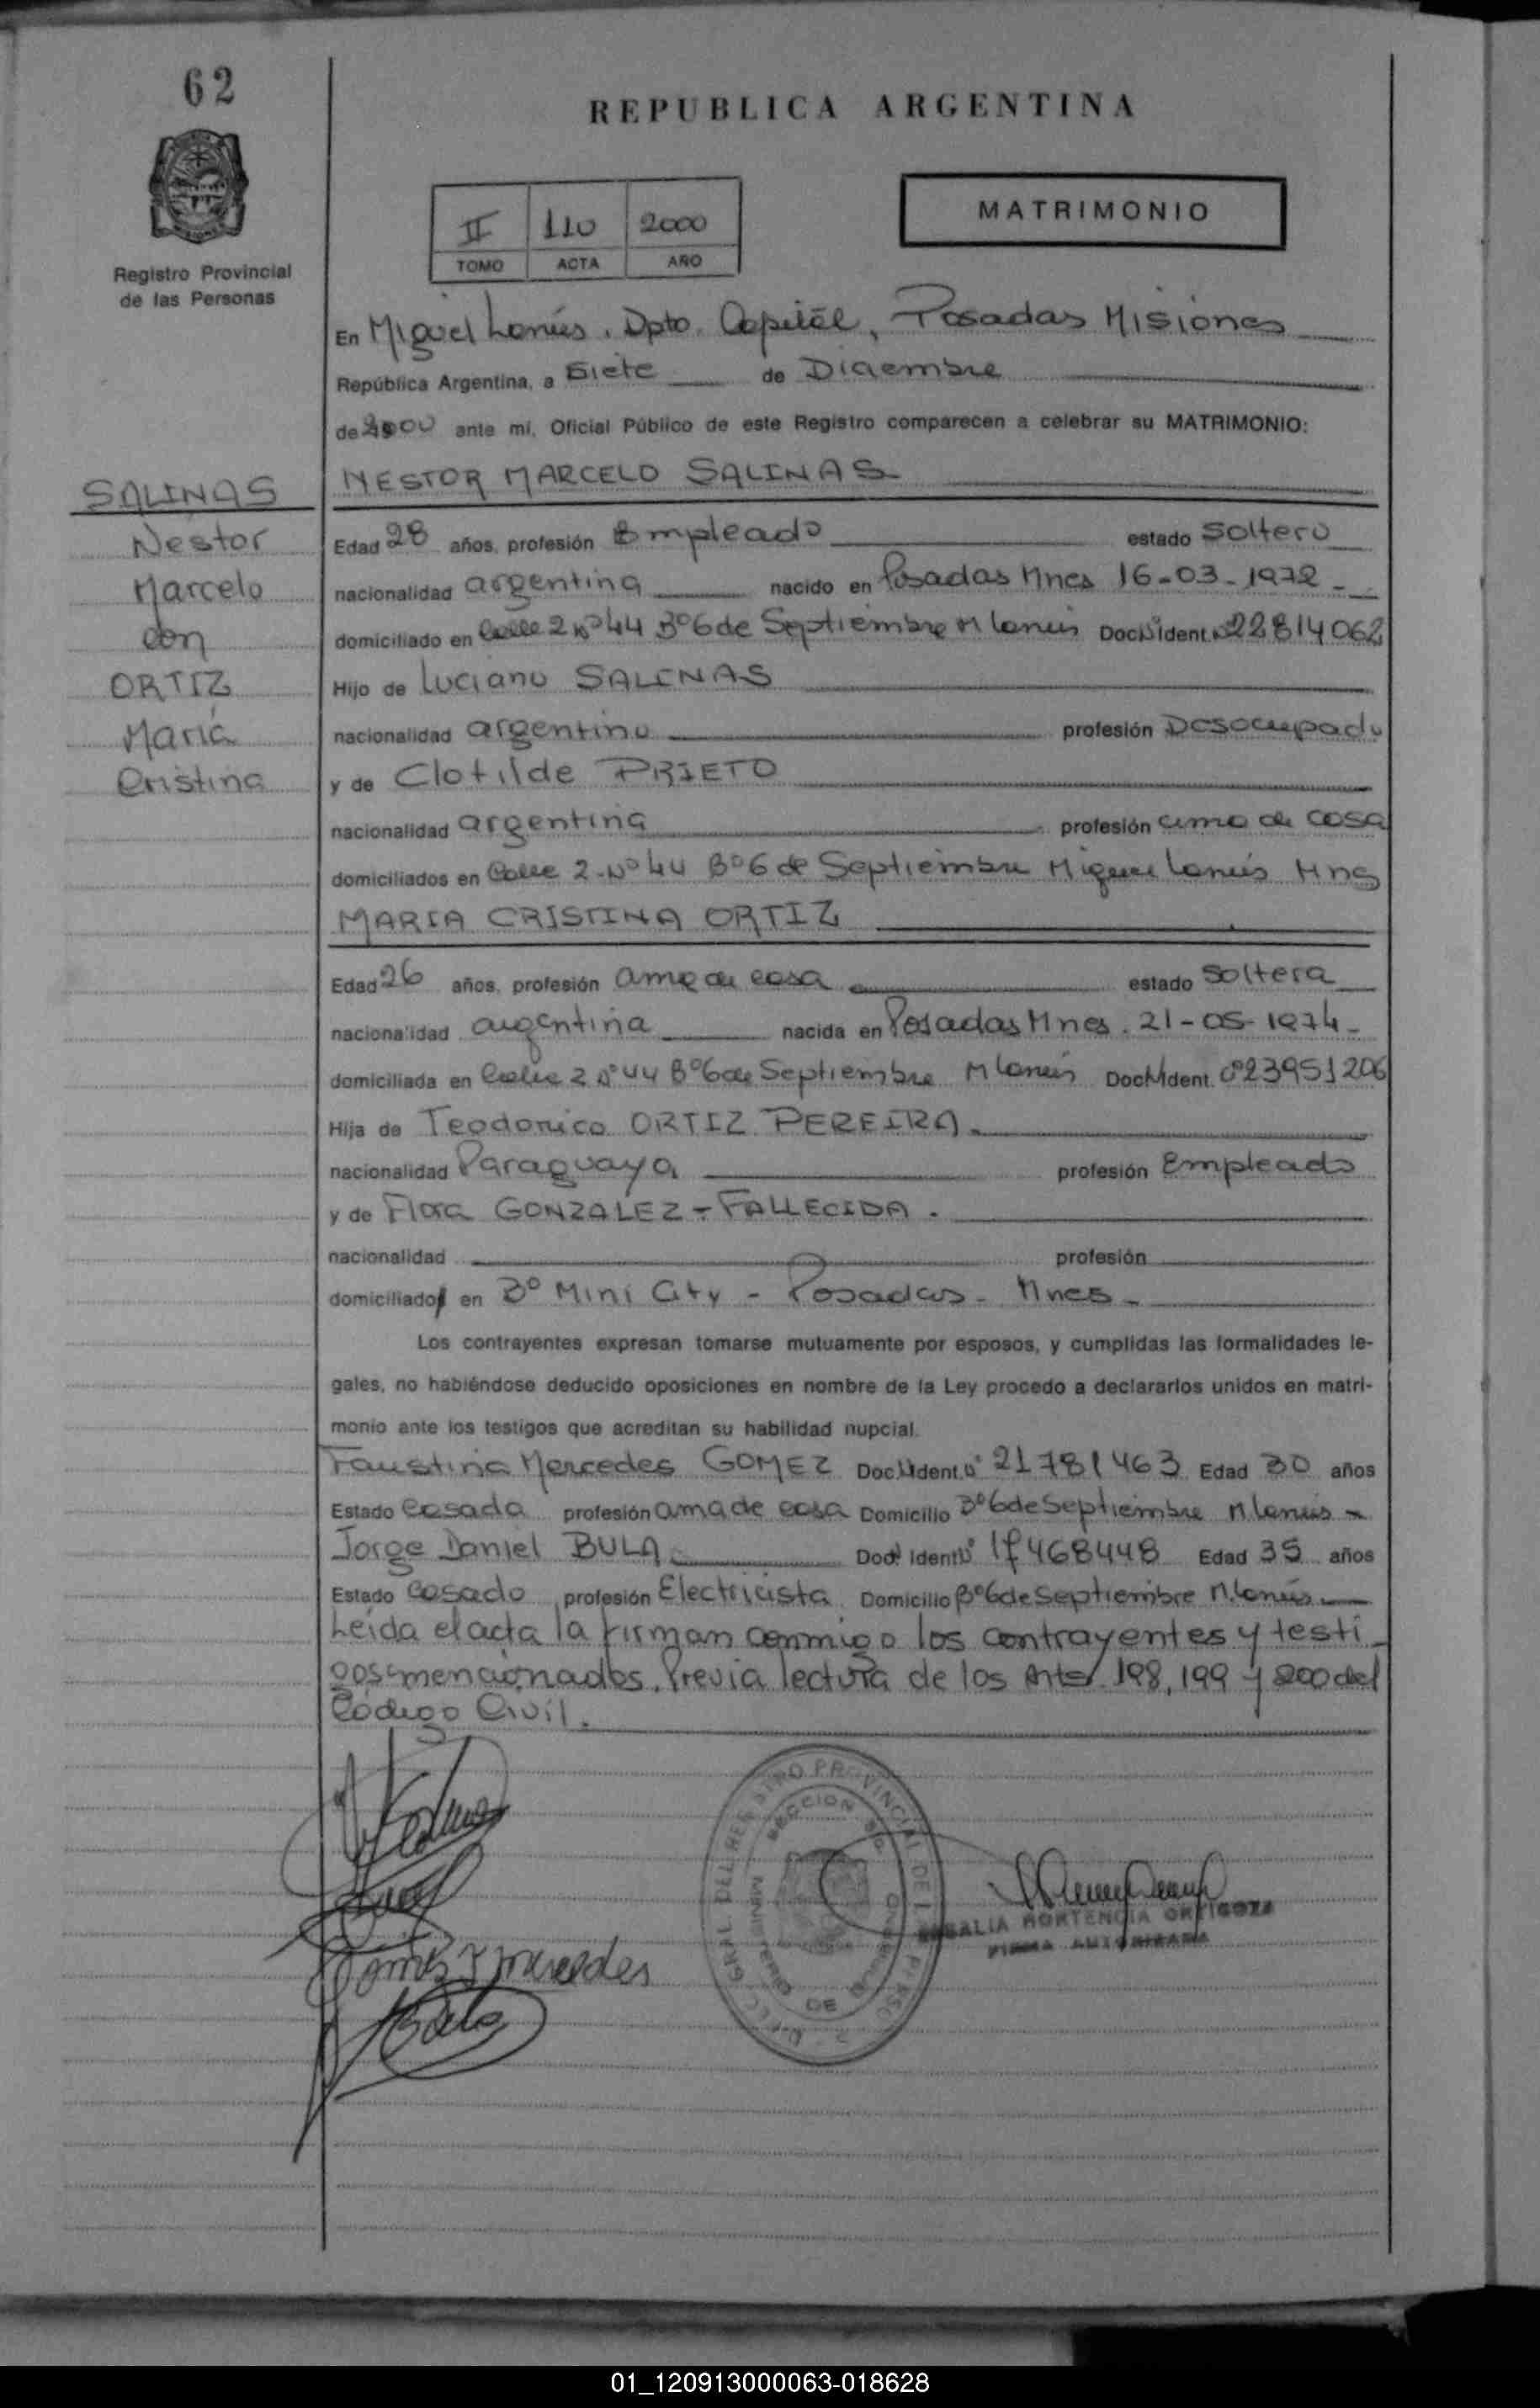 62
REPUBLICA ARGENTINA
II 110 2000
TOMO ACTA AÑO
MATRIMONIO
Registro Provincial
de las Personas
En Miguel Lanús, Dpto. Capital, Posadas Misiones
República Argentina, a Siete de Diciembre
de 2000 ante mí, Oficial Público de este Registro comparecen a celebrar su MATRIMONIO:
NESTOR MARCELO SALINAS
SALINAS
Nestor
Marcelo
con
ORTIZ
María
Cristina
Edad 28 años, profesión Empleado estado Soltero
nacionalidad argentina nacido en Posadas Mnes 16-03-1972-
domiciliado en Calle 2 Nº 44 Bº 6 de Septiembre M Lanús Doc. Ident. 22814062
Hijo de Luciano SALINAS
nacionalidad argentino profesión Desocupado
y de Clotilde PRIETO
nacionalidad argentina profesión ama de casa
domiciliados en Calle 2-Nº 44 Bº 6 de Septiembre Miguel Lanús Mns
MARIA CRISTINA ORTIZ
Edad 26 años, profesión ama de casa estado Soltera
nacionalidad argentina nacida en Posadas Mnes. 21-05-1974-
domiciliada en Calle 2 Nº 44 Bº 6 de Septiembre M Lanús Doc. Ident. 23951206
Hija de Teodorico ORTIZ PEREIRA.
nacionalidad Paraguaya profesión Empleado
y de Flora GONZALEZ - FALLECIDA.
nacionalidad profesión
domiciliado en Bº Mini City - Posadas - Mnes -
Los contrayentes expresan tomarse mutuamente por esposos, y cumplidas las formalidades le-
gales, no habiéndose deducido oposiciones en nombre de la Ley procedo a declararlos unidos en matri-
monio ante los testigos que acreditan su habilidad nupcial.
Faustina Mercedes GOMEZ Doc. Ident. Nº 21781463 Edad 30 años
Estado Casada profesión ama de casa Domicilio Bº 6 de Septiembre M Lanús -
Jorge Daniel BULA Doc. Ident. Nº 17468448 Edad 35 años
Estado Casado profesión Electricista Domicilio Bº 6 de Septiembre M. Lanús
Leída el acta la firman conmigo los contrayentes y testi-
gos mencionados. Previa lectura de los Arts. 198, 199 y 200 del
Código Civil.
Gomez F mercedes
ROSALIA HORTENCIA ORTIGOZA
FIRMA AUTORIZADA
01_120913000063-018628